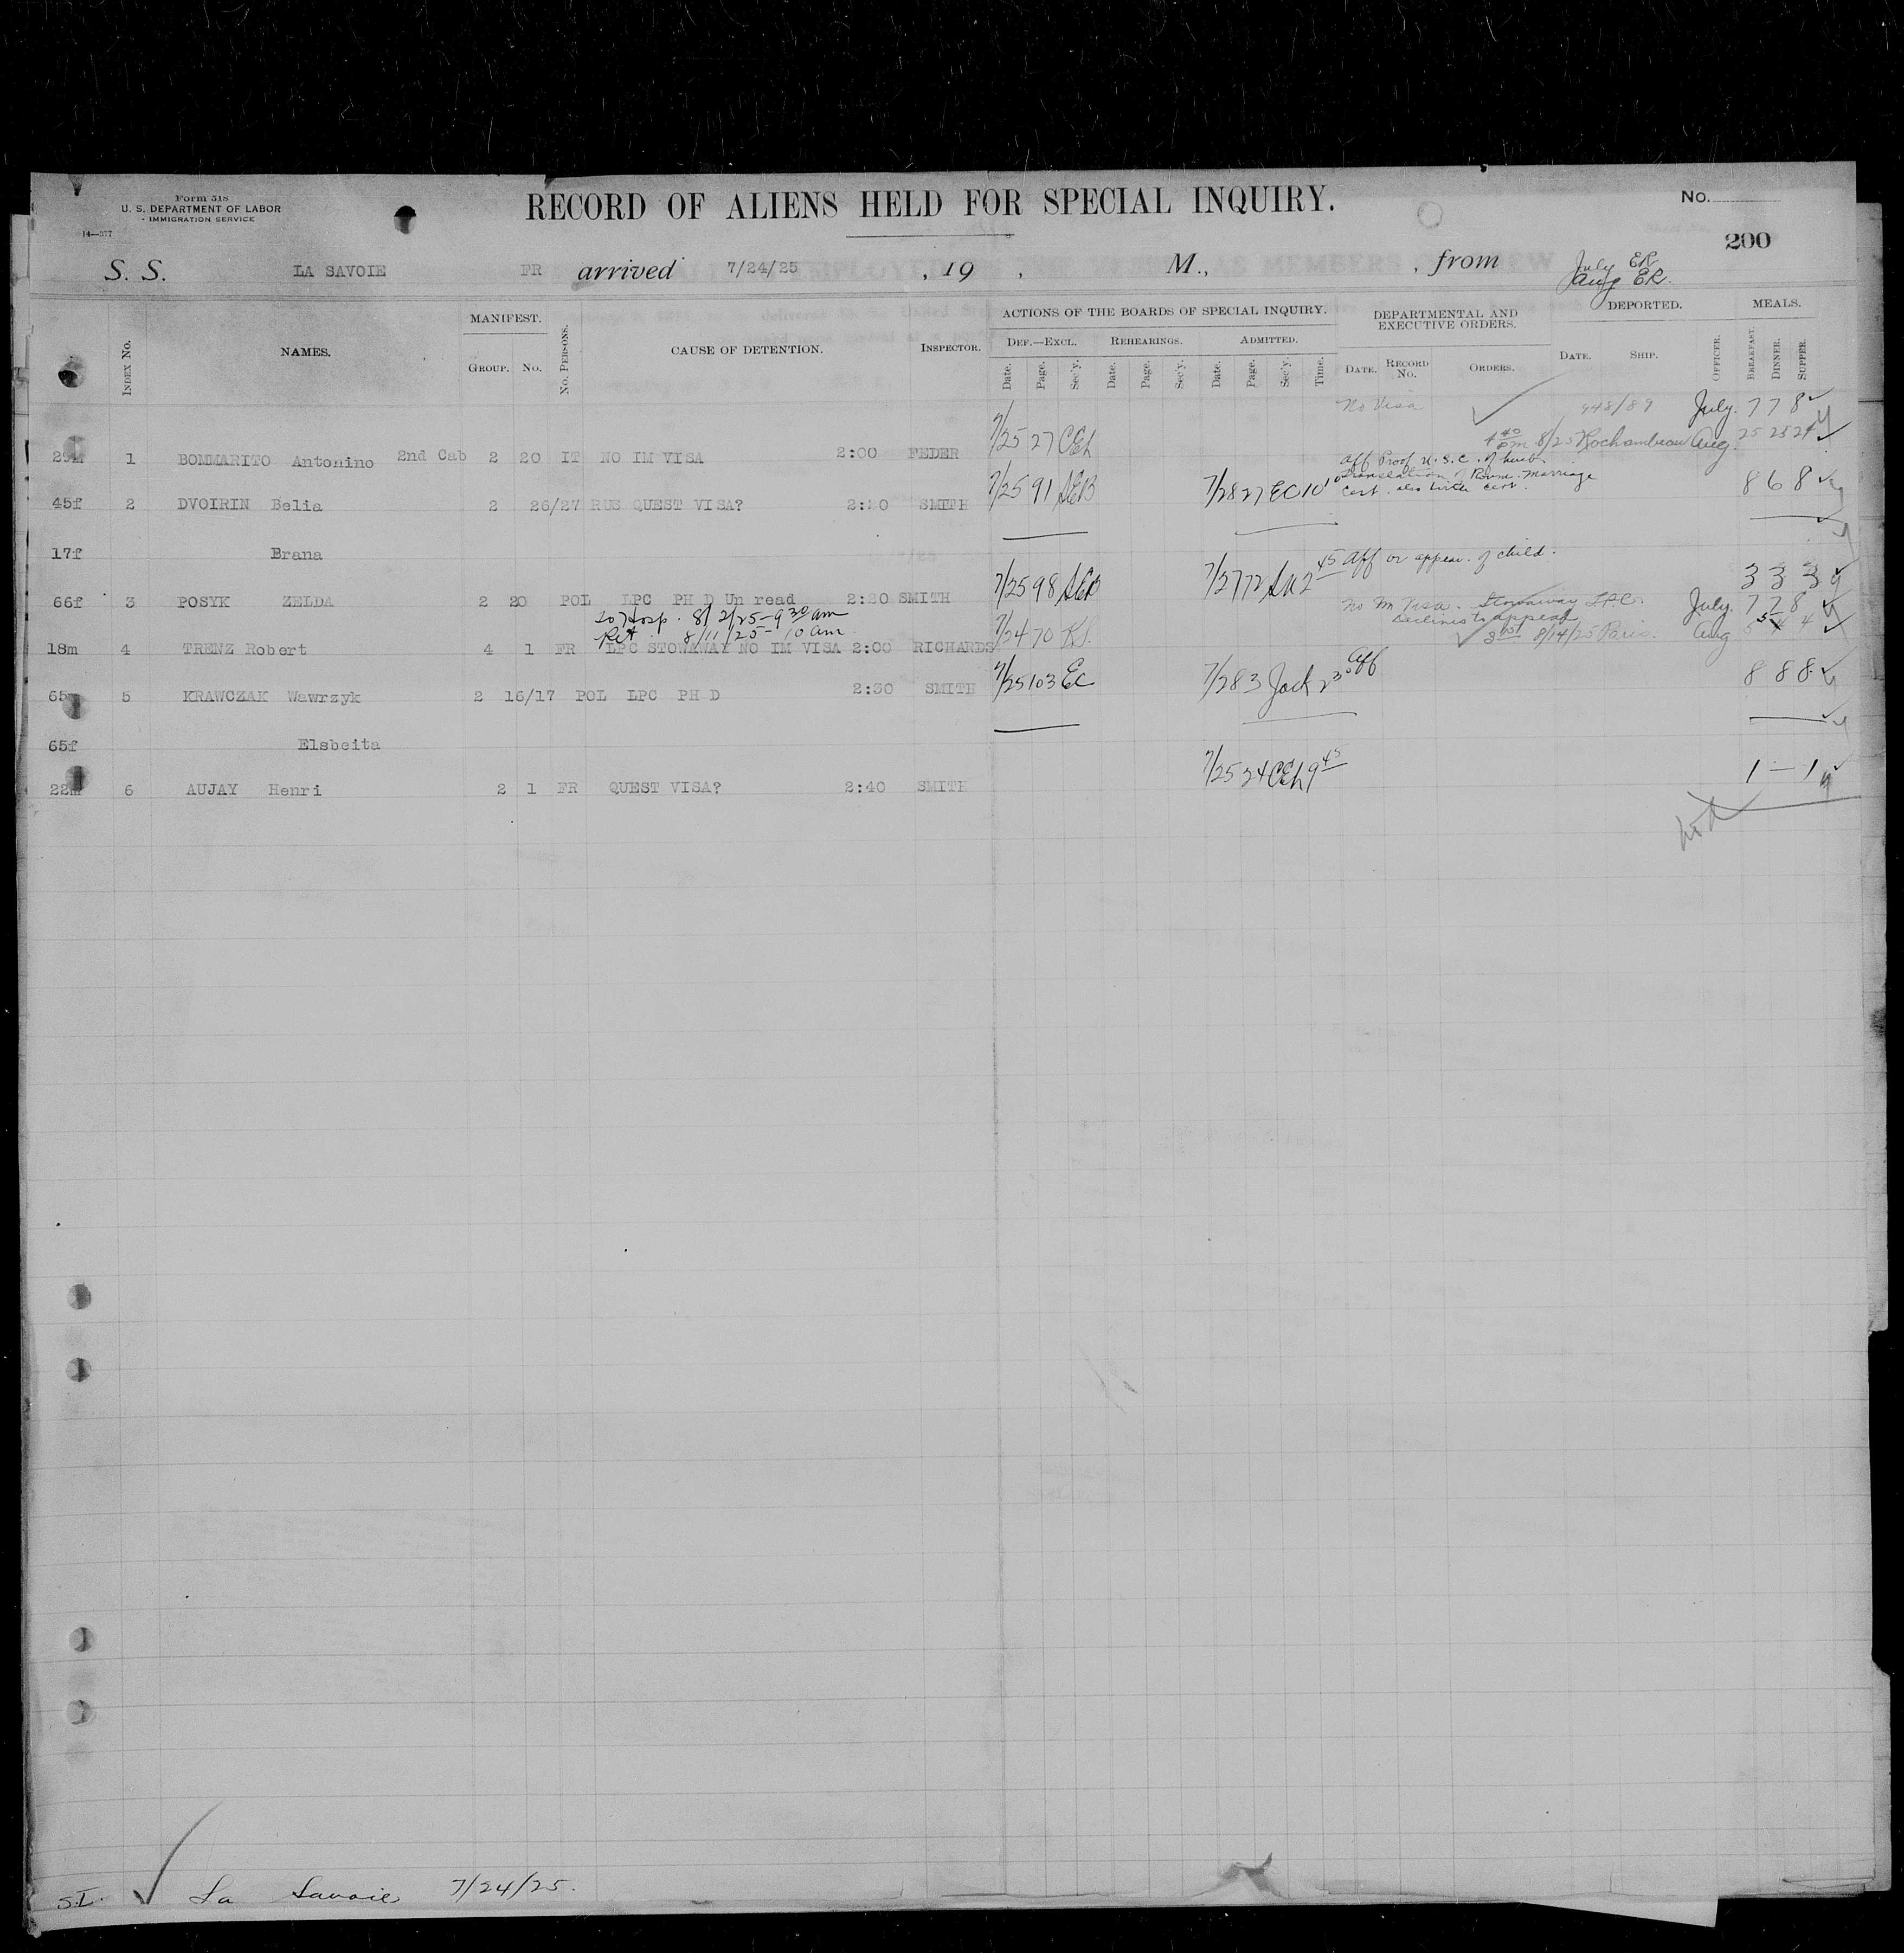 Form 518
U. S. DEPARTMENT OF LABOR
IMMIGRATION SERVICE
14—377
RECORD OF ALIENS HELD FOR SPECIAL INQUIRY.
No.
200
S. S. LA SAVOIE FR arrived 7/24/25 , 19 , M., , from July ER
Aug ER.
INDEX No. NAMES. MANIFEST. GROUP. No. No. PERSONS. CAUSE OF DETENTION. INSPECTOR. ACTIONS OF THE BOARDS OF SPECIAL INQUIRY. DEPARTMENTAL AND EXECUTIVE ORDERS. DEPORTED. MEALS.
DEF.—EXCL. REHEARINGS. ADMITTED.
Date. Page. Sec'y. Date. Page. Sec'y. Date. Page. Sec'y. Time. DATE. RECORD No. ORDERS. DATE. SHIP. OFFICER. BREAKFAST. DINNER. SUPPER.
No Visa 948/89 July. 7 7 8
29m 1 BOMMARITO Antonino 2nd Cab 2 20 IT NO IM VISA 2:00 FEDER 7/25 27 CEH 4 40 pm 8/25 Rochambeau Aug. 25 25 24
45f 2 DVOIRIN Belia 2 26/27 RUS QUEST VISA? SMITH 7/25 91 SEB 7/28 27 EC 10 10 Aff Proof U.S.C. of husb.
Translation of Roum. Marriage
Cert. also birth cert. 8 6 8
17f Brana
66f 3 POSYK ZELDA 2 20 POL LPC PH D Un read 2:20 SMITH 7/25 98 SEB 7/27 72 2 45 Aff or appear. of child. 3 3 3
To Hosp. 8/2/25-9 30 am
Ret. 8/11/25-10 am
18m 4 TRENZ Robert 4 1 FR LPC STOWAWAY NO IM VISA 2:00 RICHARDS 7/24 70 No Im Visa. Stowaway LPC. July. 7 7 8
Declines to appeal 8/14/25 Paris. Aug 4 4
65m 5 KRAWCZAK Wawrzyk 2 16/17 POL LPC PH D 2:30 SMITH 7/25 103 EC 7/28 3 Jack 2 30 Aff 8 8 8
65f Elsbeita
22m 6 AUJAY Henri 2 1 FR QUEST VISA? 2:40 SMITH 7/25 24 CEH 9 45 1 — 1
S.I. La Savoie 7/24/25.